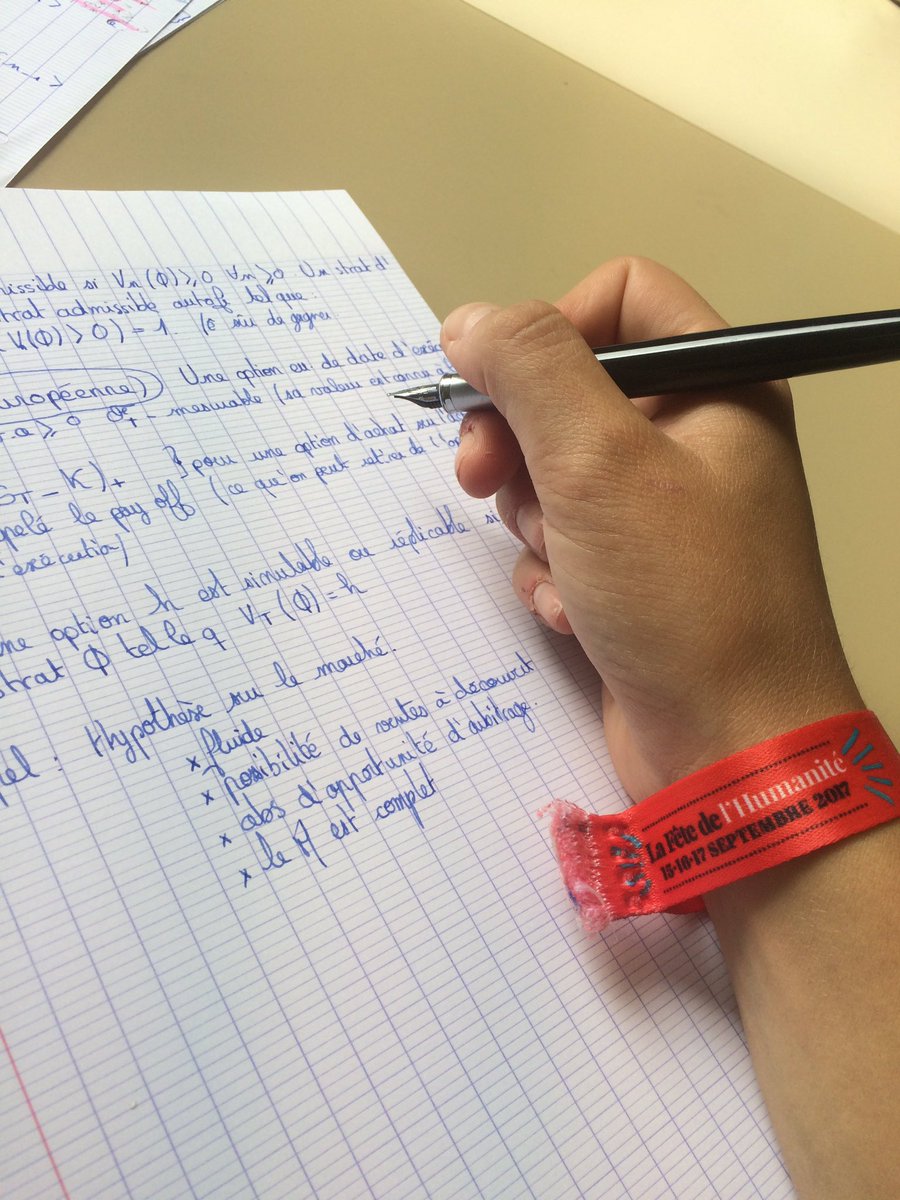 missible si Vn(Φ) ≥ 0 ∀n ≥ 0 Un strat d'
strat admissible autofi tel que
V(Φ) > 0) = 1. (sûr de gagner
uropéenne) Une option eu. de date d'exéc
≥ 0 mesurable (sa valeur est connue
ST - K)+ } pour une option d'achat sur l'
pelé le pay off (ce qu'on peut retirer de l'op
'exécution)
ne option h est simulable ou réplicable si
strat Φ telle q VT(Φ) = h
el : Hypothèse sur le marché.
x fluide
x possibilité de ventes à découvert
x abs d'opportunité d'arbitrage.
x le M est complet
La Fête de l'Humanité
15-16-17 SEPTEMBRE 2017